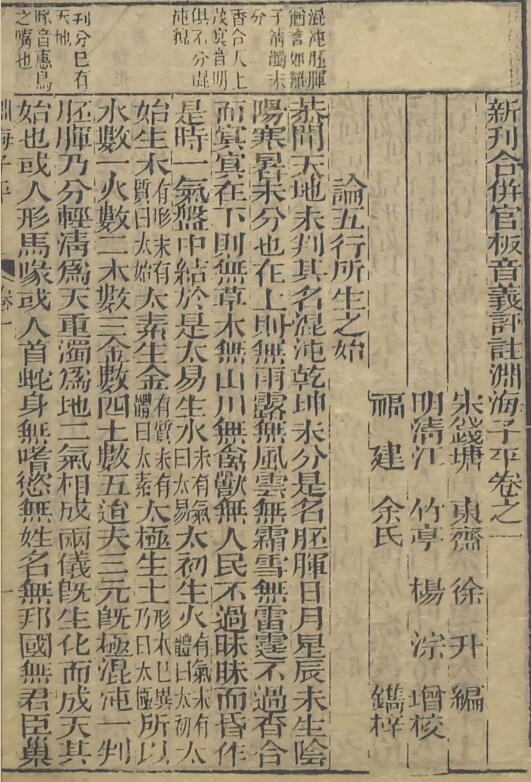 新刊合併官板音義評註淵海子平卷之一
宋錢塘 東齋 徐升 編
明清江 竹亭 楊淙 增校
福建 余氏 鐫梓
論五行所生之始
葢聞天地未判其名混沌乾坤未分是名胚腪日月星辰未生陰
陽寒暑未分也在上則無雨露無風雲無霜雪無雷霆不過香合
而冥冥在下則無草木無山川無禽獸無人民不過昧昧而昏作
是時一氣盤中結於是太易生水未有氣曰太易太初生火有氣未有體曰太初太
始生木有形未有質曰太始太素生金有質未有體曰太素太極生土形体已具乃曰太極所以
水數一火數二木數三金數四土數五迨夫三元旣極混沌一判
胚腪乃分輕清爲天重濁爲地二氣相成兩儀旣生化而成天其
始也或人形馬喙或人首蛇身無嗜慾無姓名無邦國無君臣巢
混沌胚腪
言如雞
子清濁未
分
香合天上
冥音明
俱不分混
沌貌
刊分巳有
天地
喙音惠鳥
之嘴也
淵海子平 卷一 一